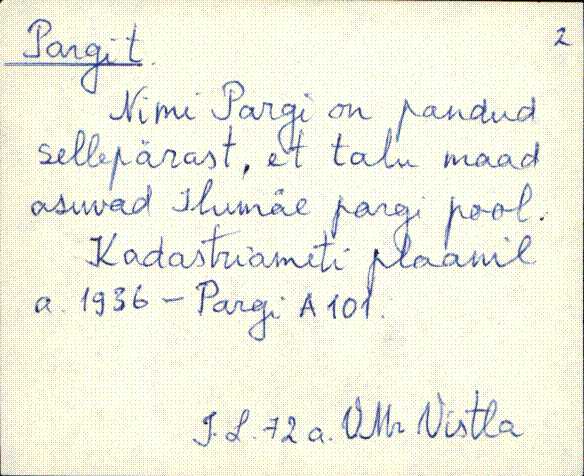 Pargi t. 2
Nimi Pargi on pandud
sellepärast, et talu maad
asuvad Ilumäe pargi pool.
Kadastriameti plaanil
a. 1936 – Pargi A 101.
J. L. 72 a. VMr Vistla